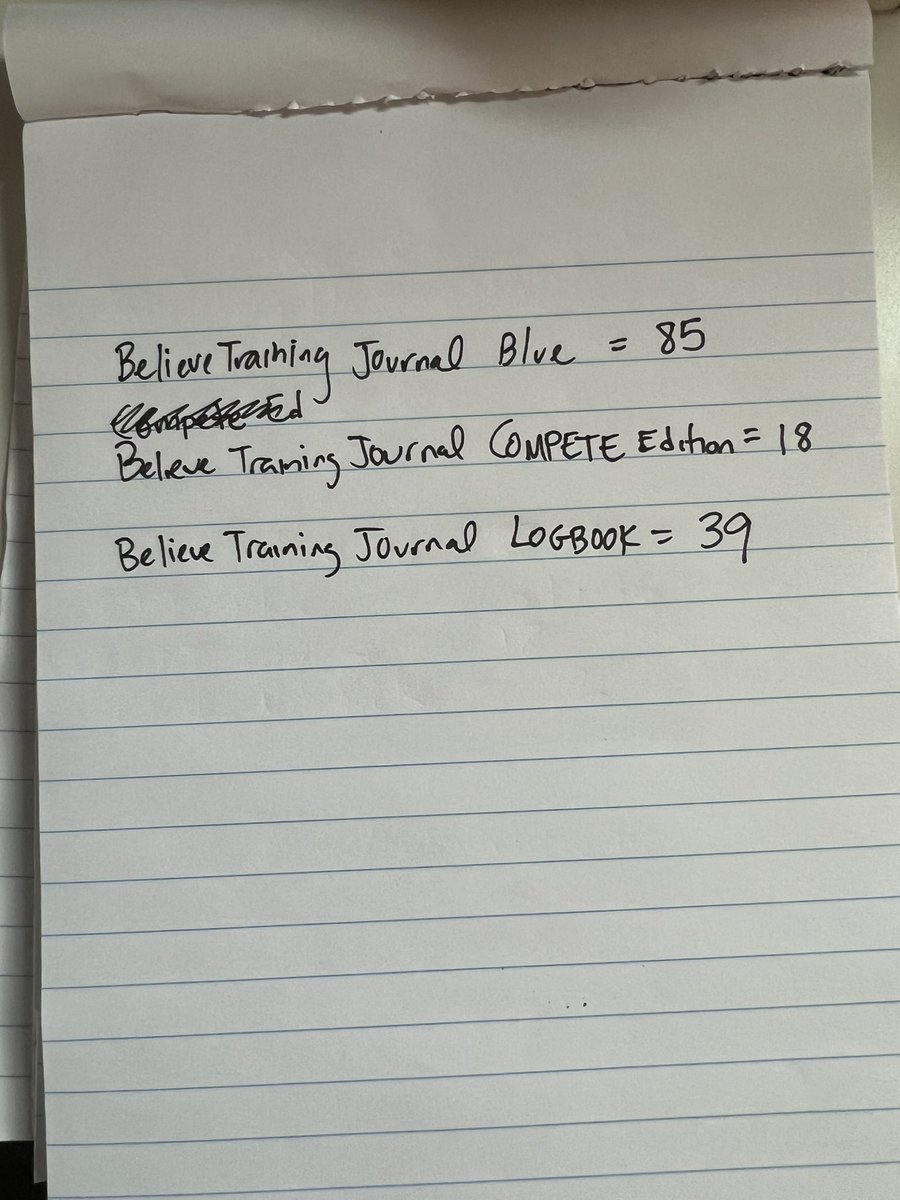 Believe Training Journal Blue = 85
Compete Ed
Believe Training Journal COMPETE Edition = 18
Believe Training Journal LOGBOOK = 39